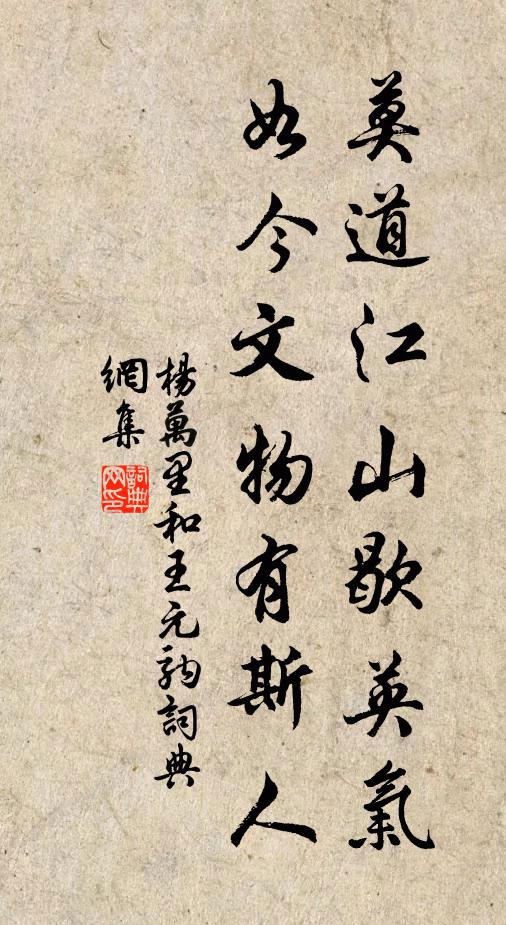 莫道江山歇英氣
如今文物有斯人
楊萬里和王元詞典
網集
詞典
网印